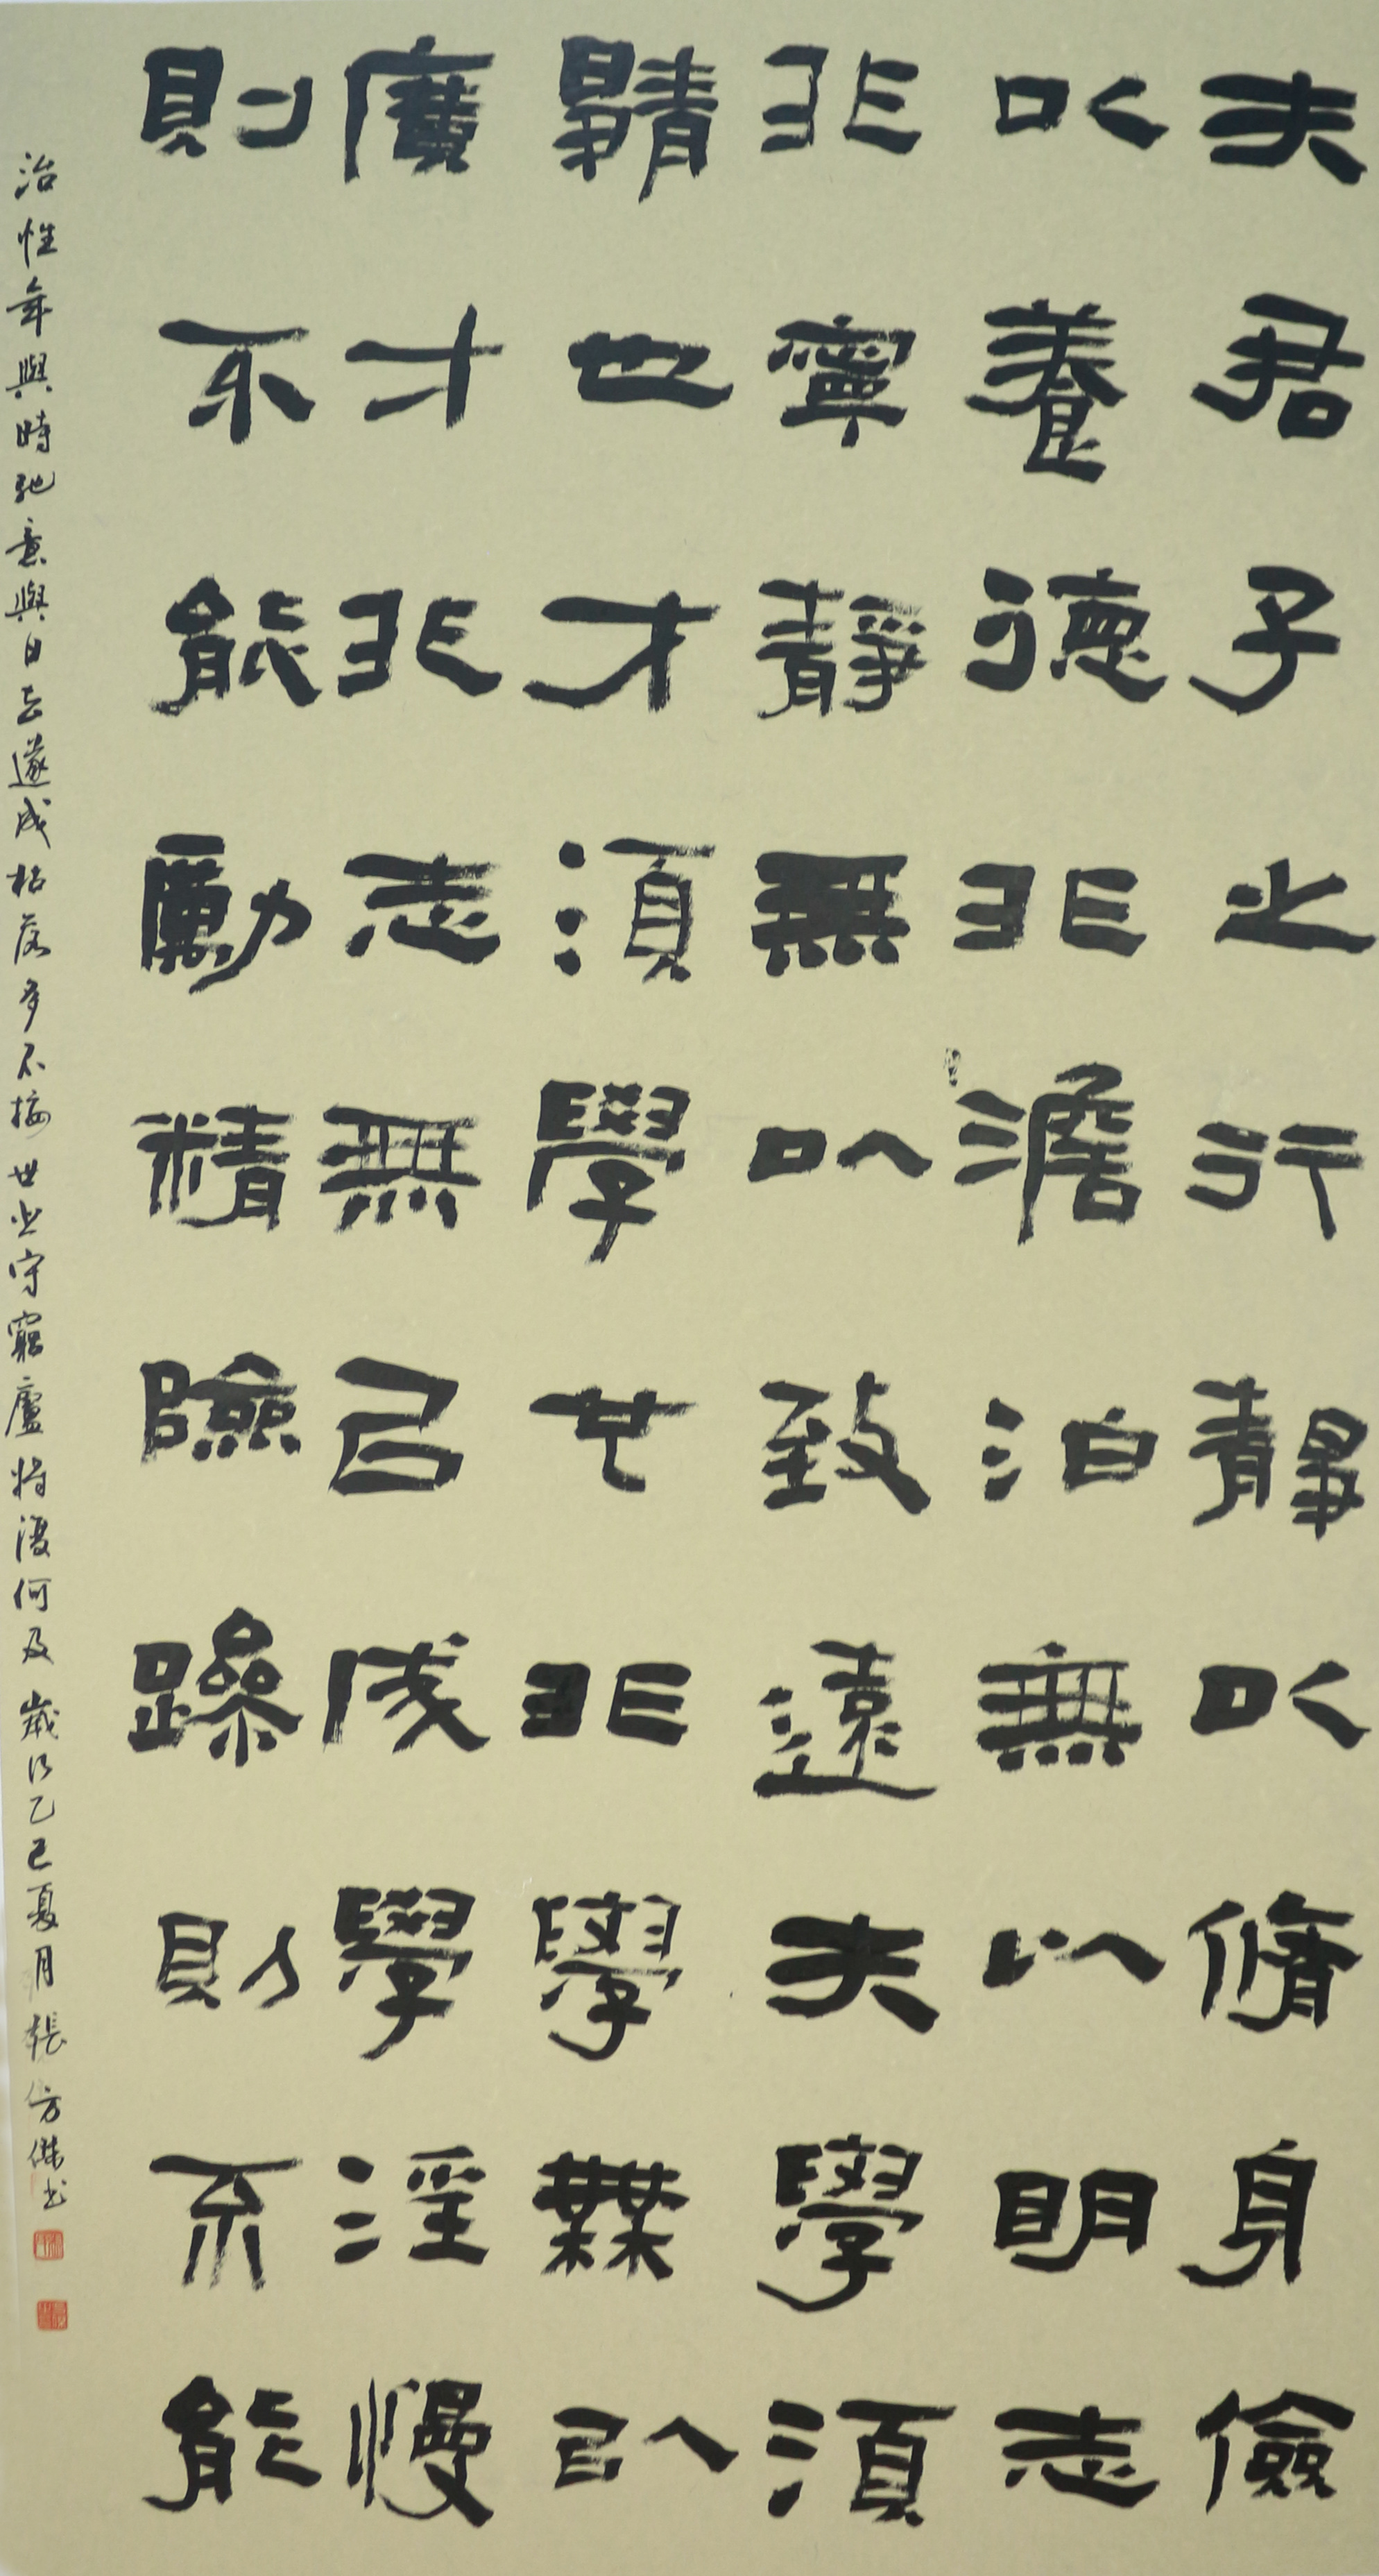 夫君子之行靜以脩身儉
以養德非澹泊無以明志
非寧靜無以致遠夫學須
靜也才須學也非學無以
廣才非志無己成學淫慢
則不能勵精險躁則不能
治性年與時馳意與日去遂成枯落多不接世悲守窮廬將復何及歲次乙巳夏月張方傑書